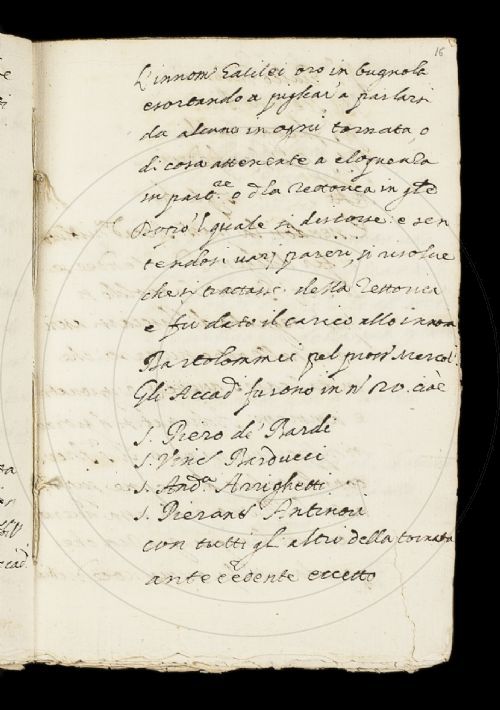 16
L'innom. Galilei orò in bugnola
esortando a pigliar' a parlarsi
da alcuno in ogni tornata, o
di cosa attenente a eloquenza
in part.re o d'la Rettorica in g'te
sopra 'l quale si discorse: e sen
tendosi varj pareri, si risolue
che si trattasse della Rettorica
e fu dato il carico allo innom.
Bartolommei pel pross.o Mercol.
Gli Accad. furono in n.o 20. cioè
S. Piero de' Bardi
S. Vinc.o Barducci
S. And.a Arrighetti
S. Pierant. Antinori
con tutti gl'altri della tornata
antecedente eccetto